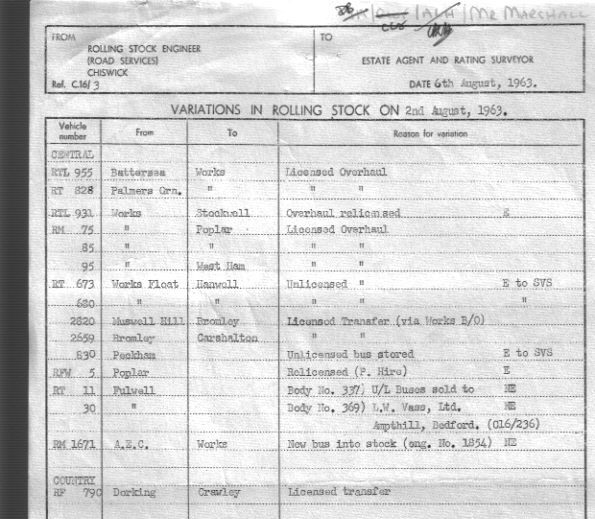 MR MARSHALL
FROM
ROLLING STOCK ENGINEER
(ROAD SERVICES)
CHISWICK
Ref. C.16/3
TO
ESTATE AGENT AND RATING SURVEYOR
DATE 6th August, 1963.
VARIATIONS IN ROLLING STOCK ON 2nd August, 1963.
Vehicle number From To Reason for variation
CENTRAL
RTL 955 Battersea Works Licensed Overhaul
RT 828 Palmers Grn. " " "
RTL 931 Works Stockwell Overhaul relicensed E
RM 75 " Poplar Licensed Overhaul
85 " " " "
95 " West Ham " "
RT 673 Works Float Hanwell Unlicensed " E to SVS
680 " " " " "
2820 Muswell Hill Bromley Licensed Transfer (via Works B/O)
2659 Bromley Carshalton " "
830 Peckham Unlicensed bus stored E to SVS
RFW 5 Poplar Relicensed (P. Hire) E
RT 11 Fulwell Body No. 337) U/L Buses sold to NE
30 " Body No. 369) L.W. Vass, Ltd. NE
Ampthill, Bedford. (C16/236)
RM 1671 A.E.C. Works New bus into stock (eng. No. 1854) NE
COUNTRY
RF 790 Dorking Crawley Licensed transfer